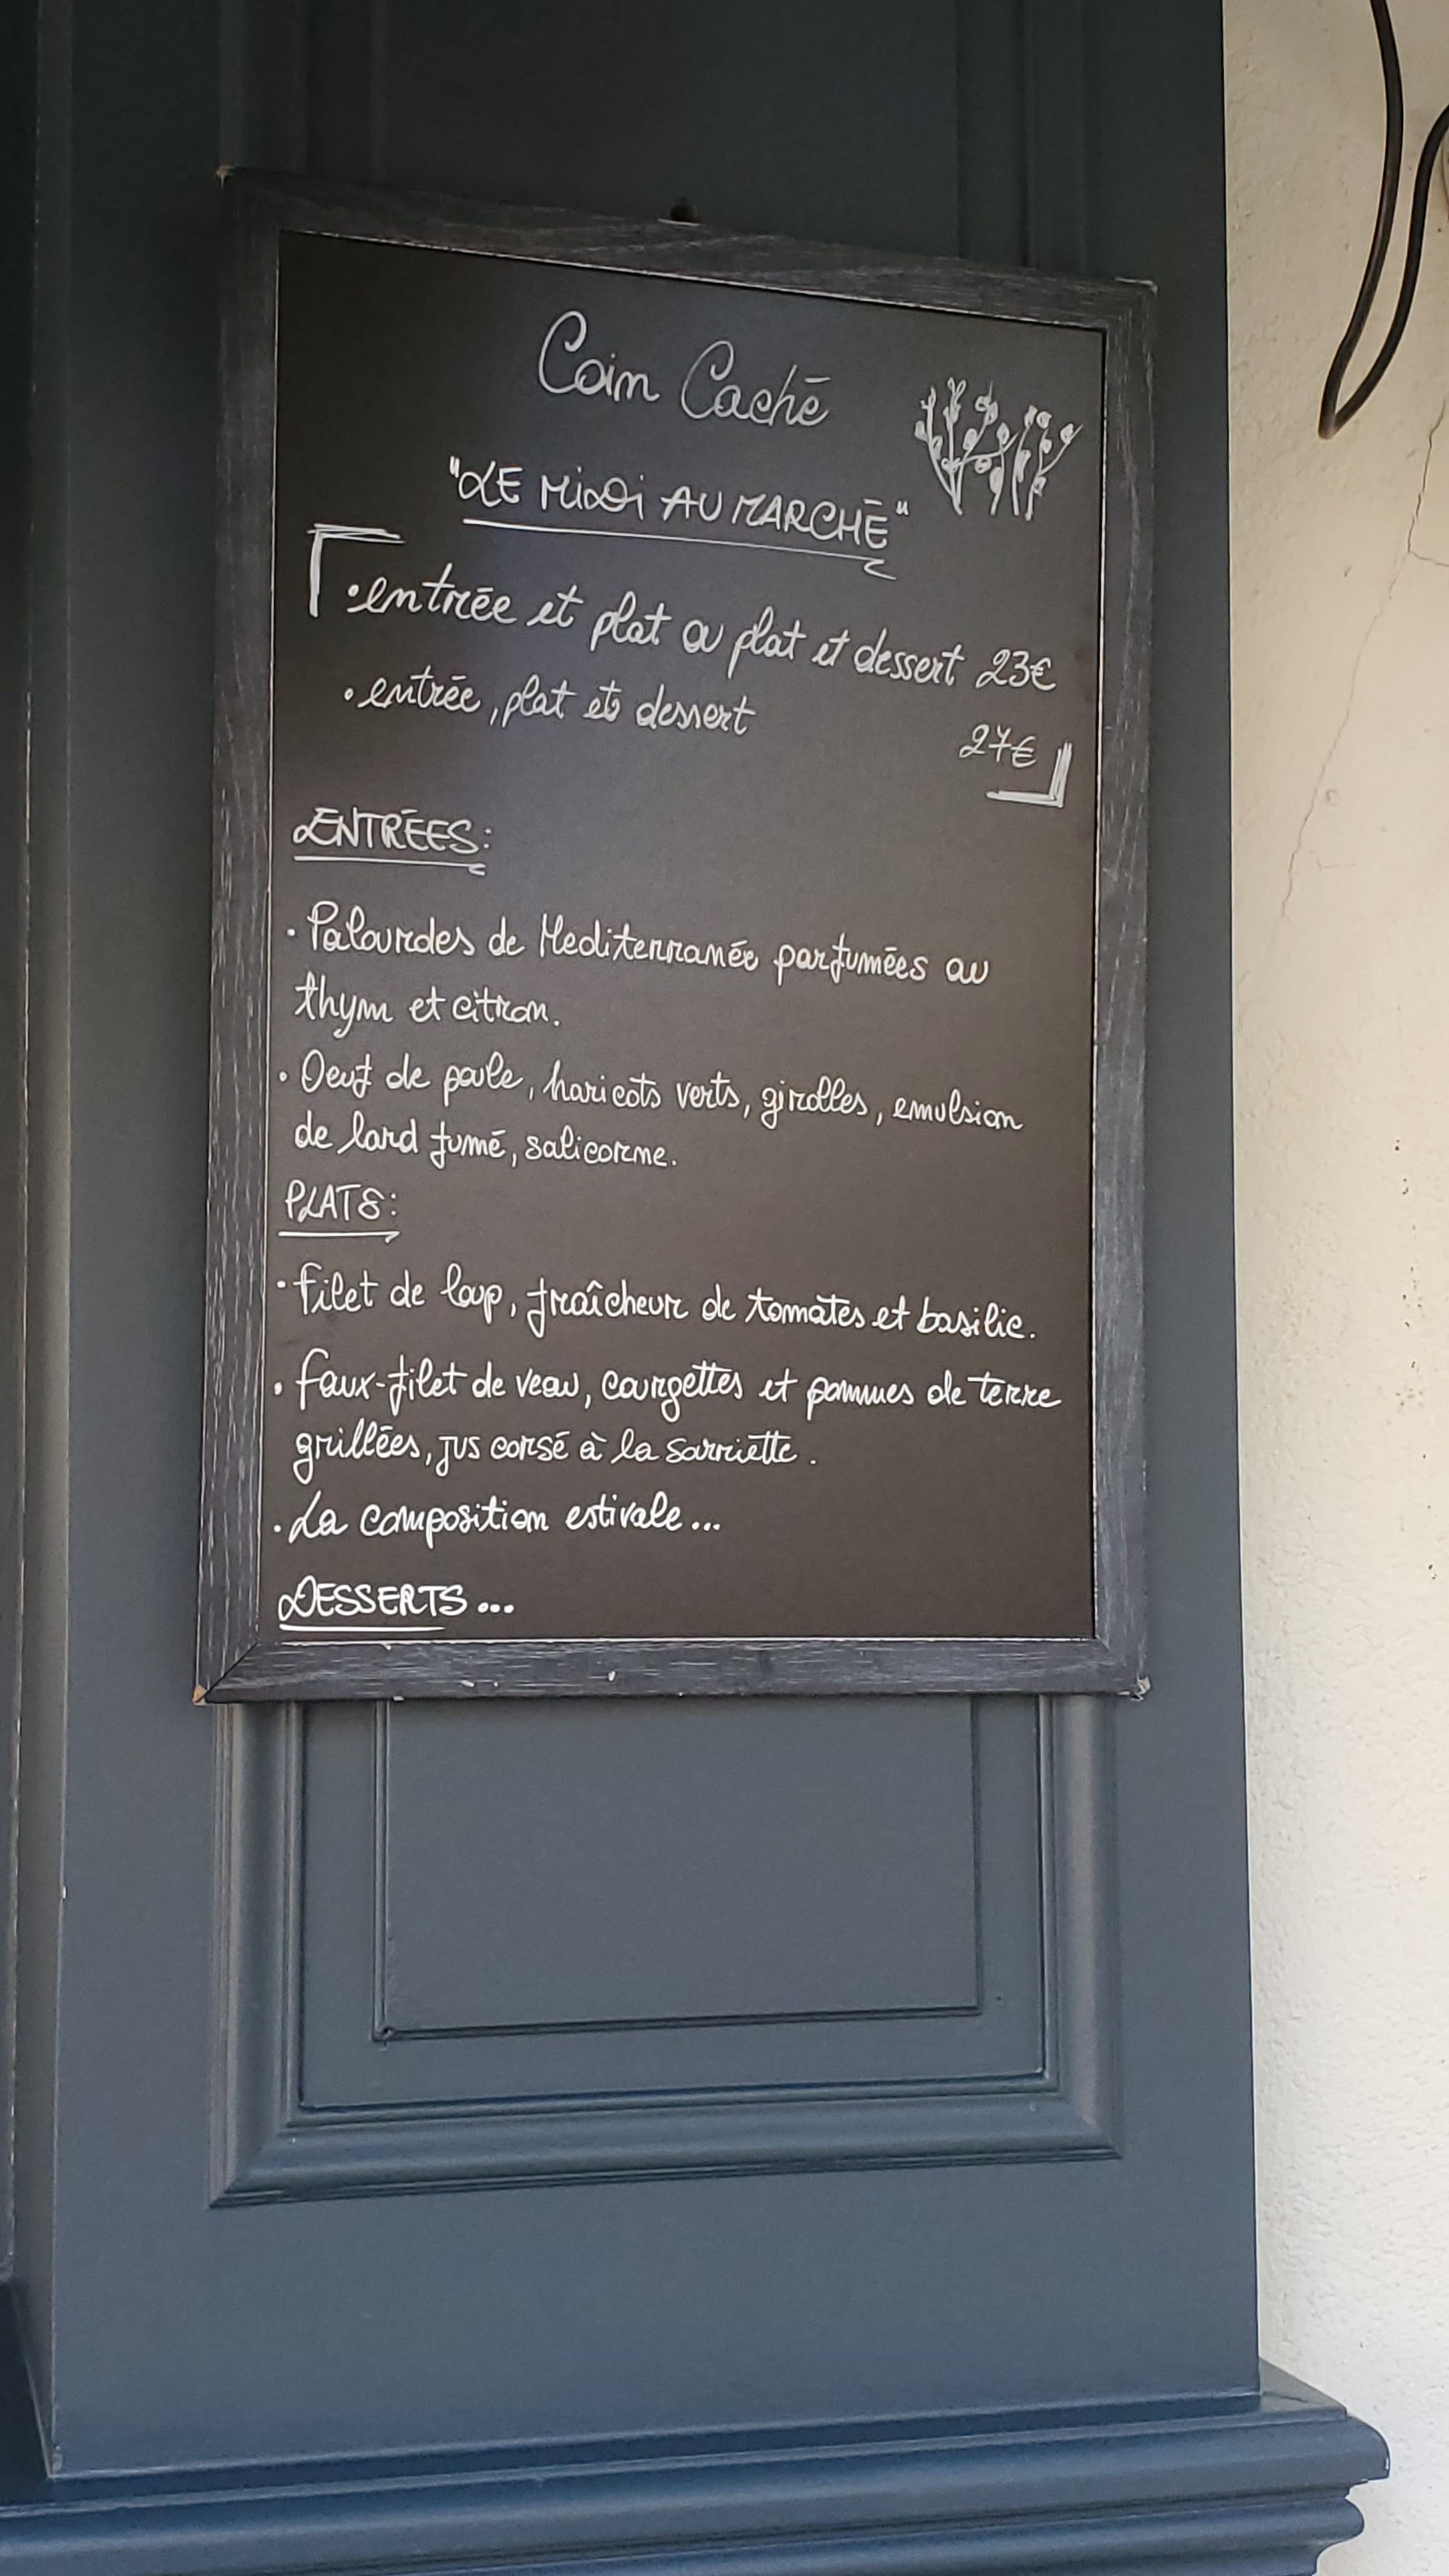 Coin Caché
"LE MiDi AU MARCHÉ"
• entrée et plat ou plat et dessert 23€
• entrée, plat et dessert
27€
ENTRÉES:
• Palourdes de Mediterranée parfumées au
thym et citron.
• Oeuf de poule, haricots verts, girolles, emulsion
de lard fumé, salicorne.
PLATS:
• Filet de loup, fraîcheur de tomates et basilic.
• Faux-filet de veau, courgettes et pommes de terre
grillées, jus corsé à la sarriette.
• La composition estivale...
DESSERTS...